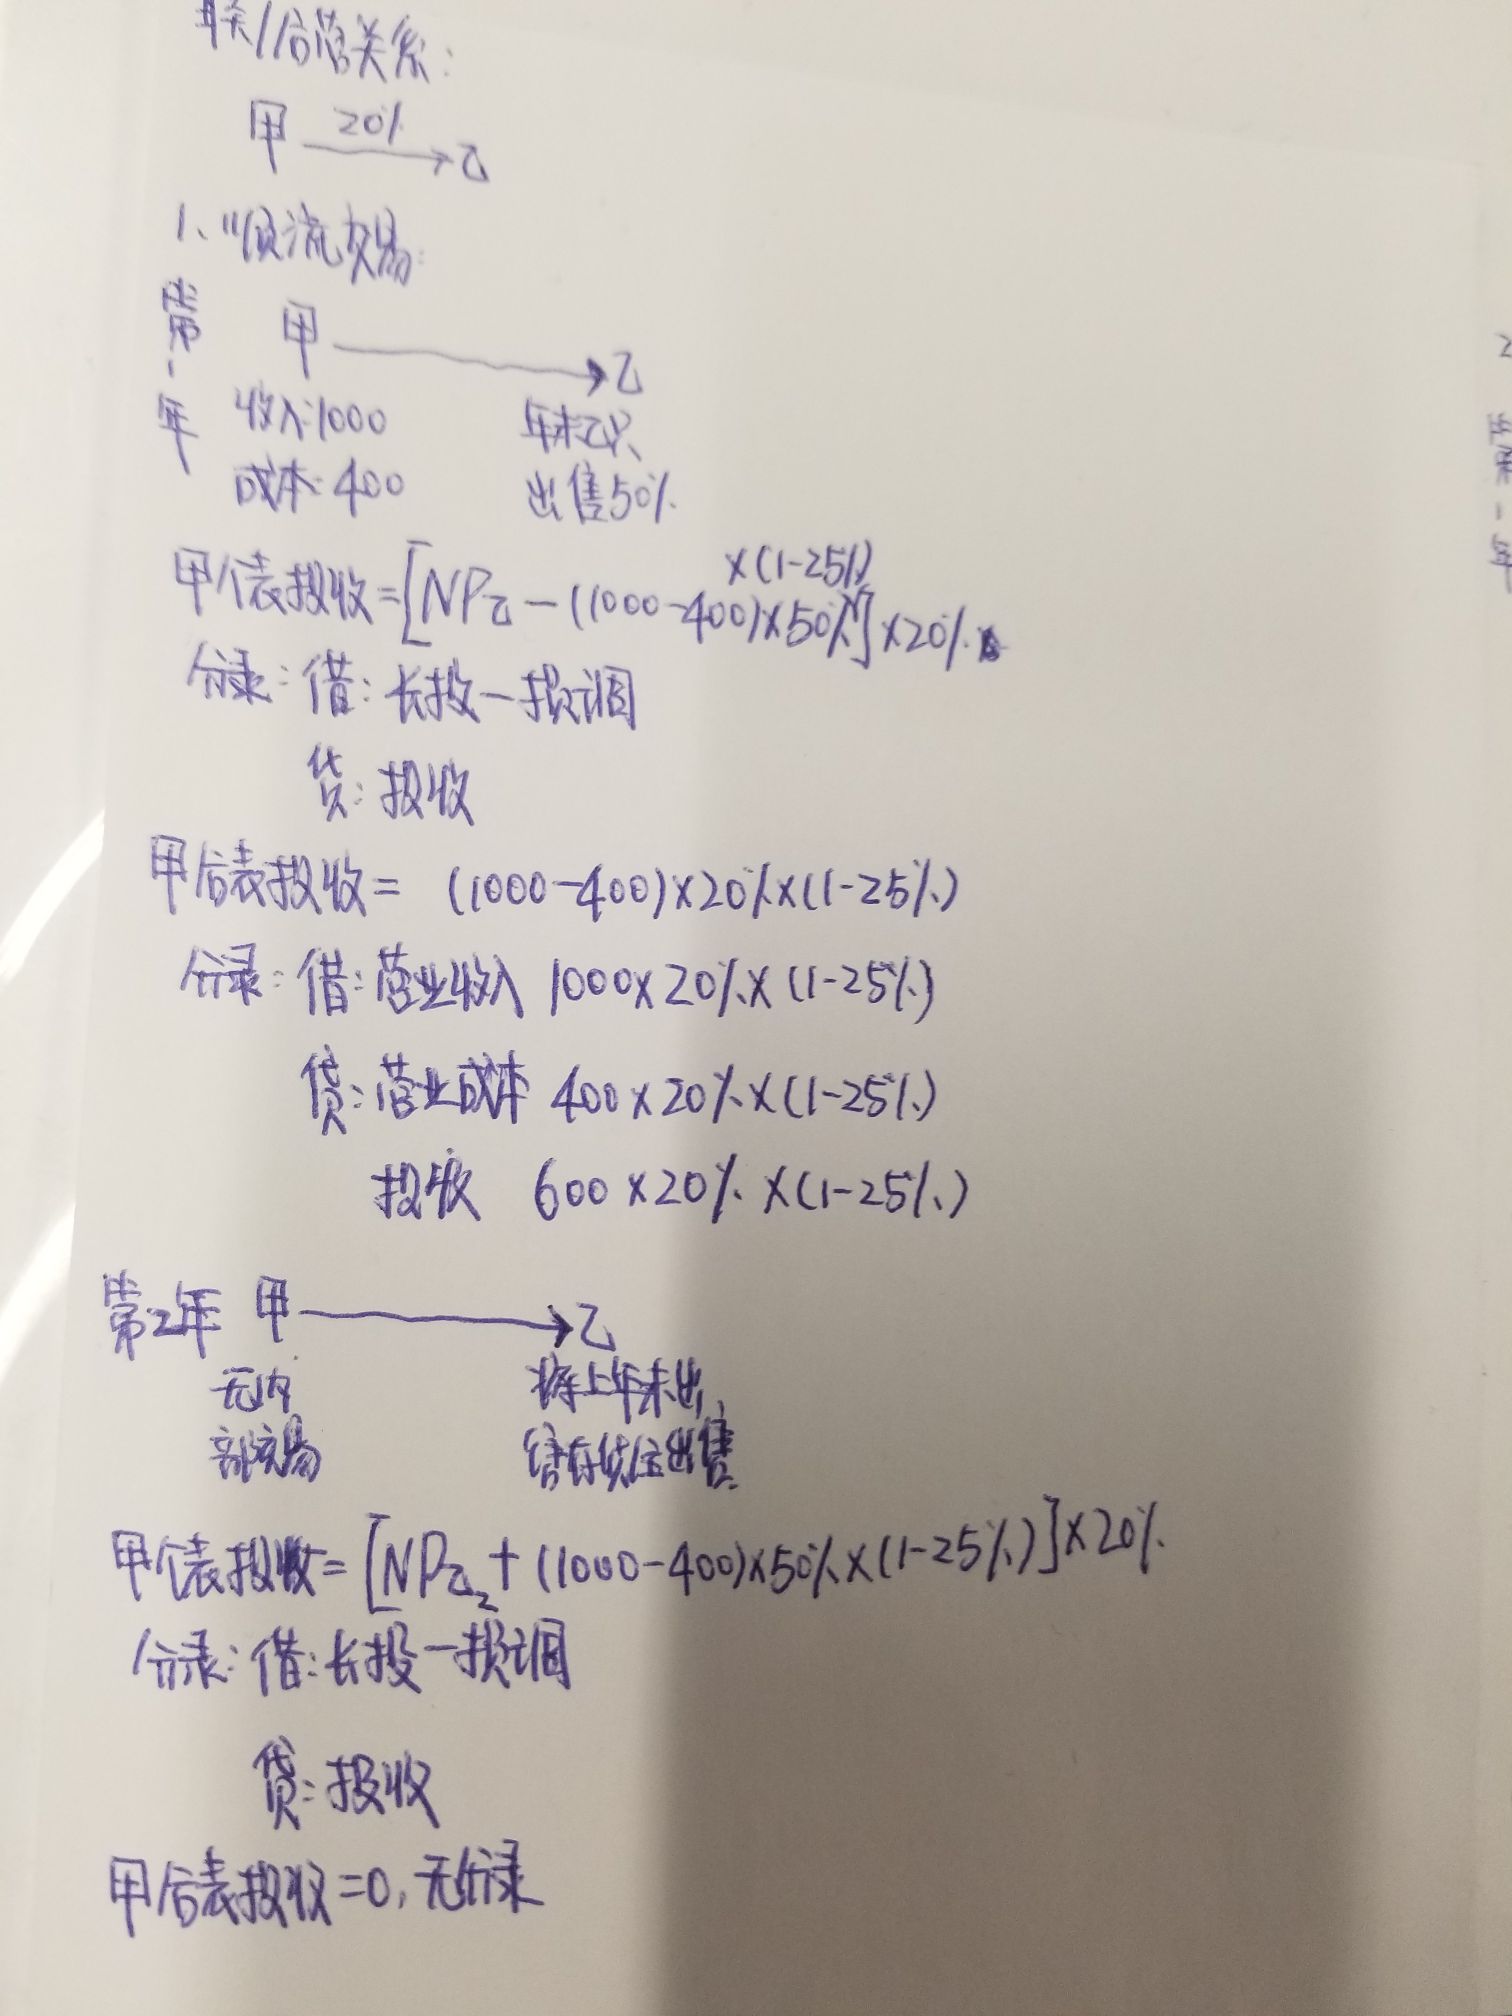 联/合营关系:
甲 20% → 乙
1、顺流交易:
第1年 甲 → 乙
收入:1000 年末乙只
成本:400 出售50%
×(1-25%)
甲个表投收=[NP乙-(1000-400)×50%]×20%
分录:借:长投-损调
贷:投收
甲合表投收= (1000-400)×20%×(1-25%)
分录:借:营业收入 1000×20%×(1-25%)
贷:营业成本 400×20%×(1-25%)
投收 600×20%×(1-25%)
第2年 甲 → 乙
无内 将上年未出
部交易 售存货全出售
甲个表投收=[NP乙2+(1000-400)×50%×(1-25%)]×20%
分录:借:长投-损调
贷:投收
甲合表投收=0,无分录
2